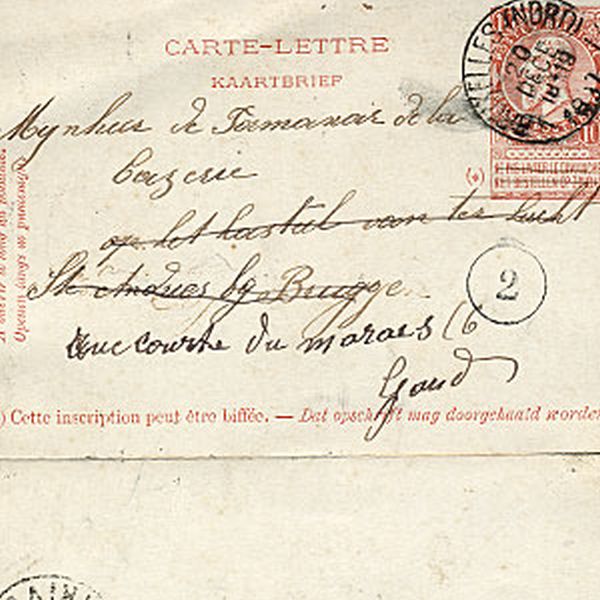 CARTE-LETTRE
KAARTBRIEF
Mynheer de Formanoir de la
Cazerie
op het kasteel van ter Lucht
St Andries by Brugge
rue courte du marais 16
Gand
2
(*)
Cette inscription peut être biffée. — Dat opschrift mag doorgehaald worden